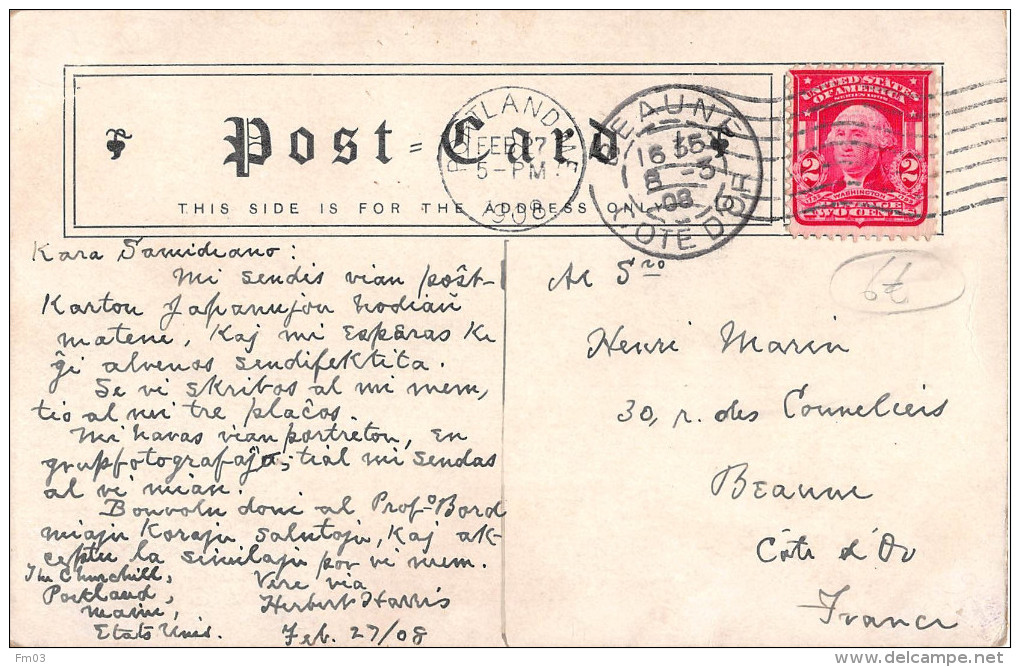 Post Card
THIS SIDE IS FOR THE ADDRESS ONLY
PORTLAND, ME.
FEB 27
5-PM
1908
BEAUNE
16 55
5 -3
08
COTE D'OR
UNITED STATES
OF AMERICA
SERIES 1902
2 2
WASHINGTON
TWO CENTS
Kara Samideano:
Mi sendis vian poŝt-
Karton Japanujon hodiaŭ
matene, Kaj mi esperas Ke
ĝi alvenos sendifektita.
Se vi skribos al mi mem,
tio al mi tre plaĉos.
Mi havas vian portreton, en
grupfotografaĵo, tial mi sendas
al vi mian.
Bonvolu doni al Profo Bord
miajn Korajn salutojn, Kaj ak-
ceptu la similajn por vi mem.
The Churchill,
Portland,
Maine,
Etats Unis.
Vere via
Herbert Harris
Feb. 27/08
Al Sro
Henri Marin
30, r. des Conneliers
Beaune
Côte d'Or
France
6€
Fm03
http://www.delcampe.net